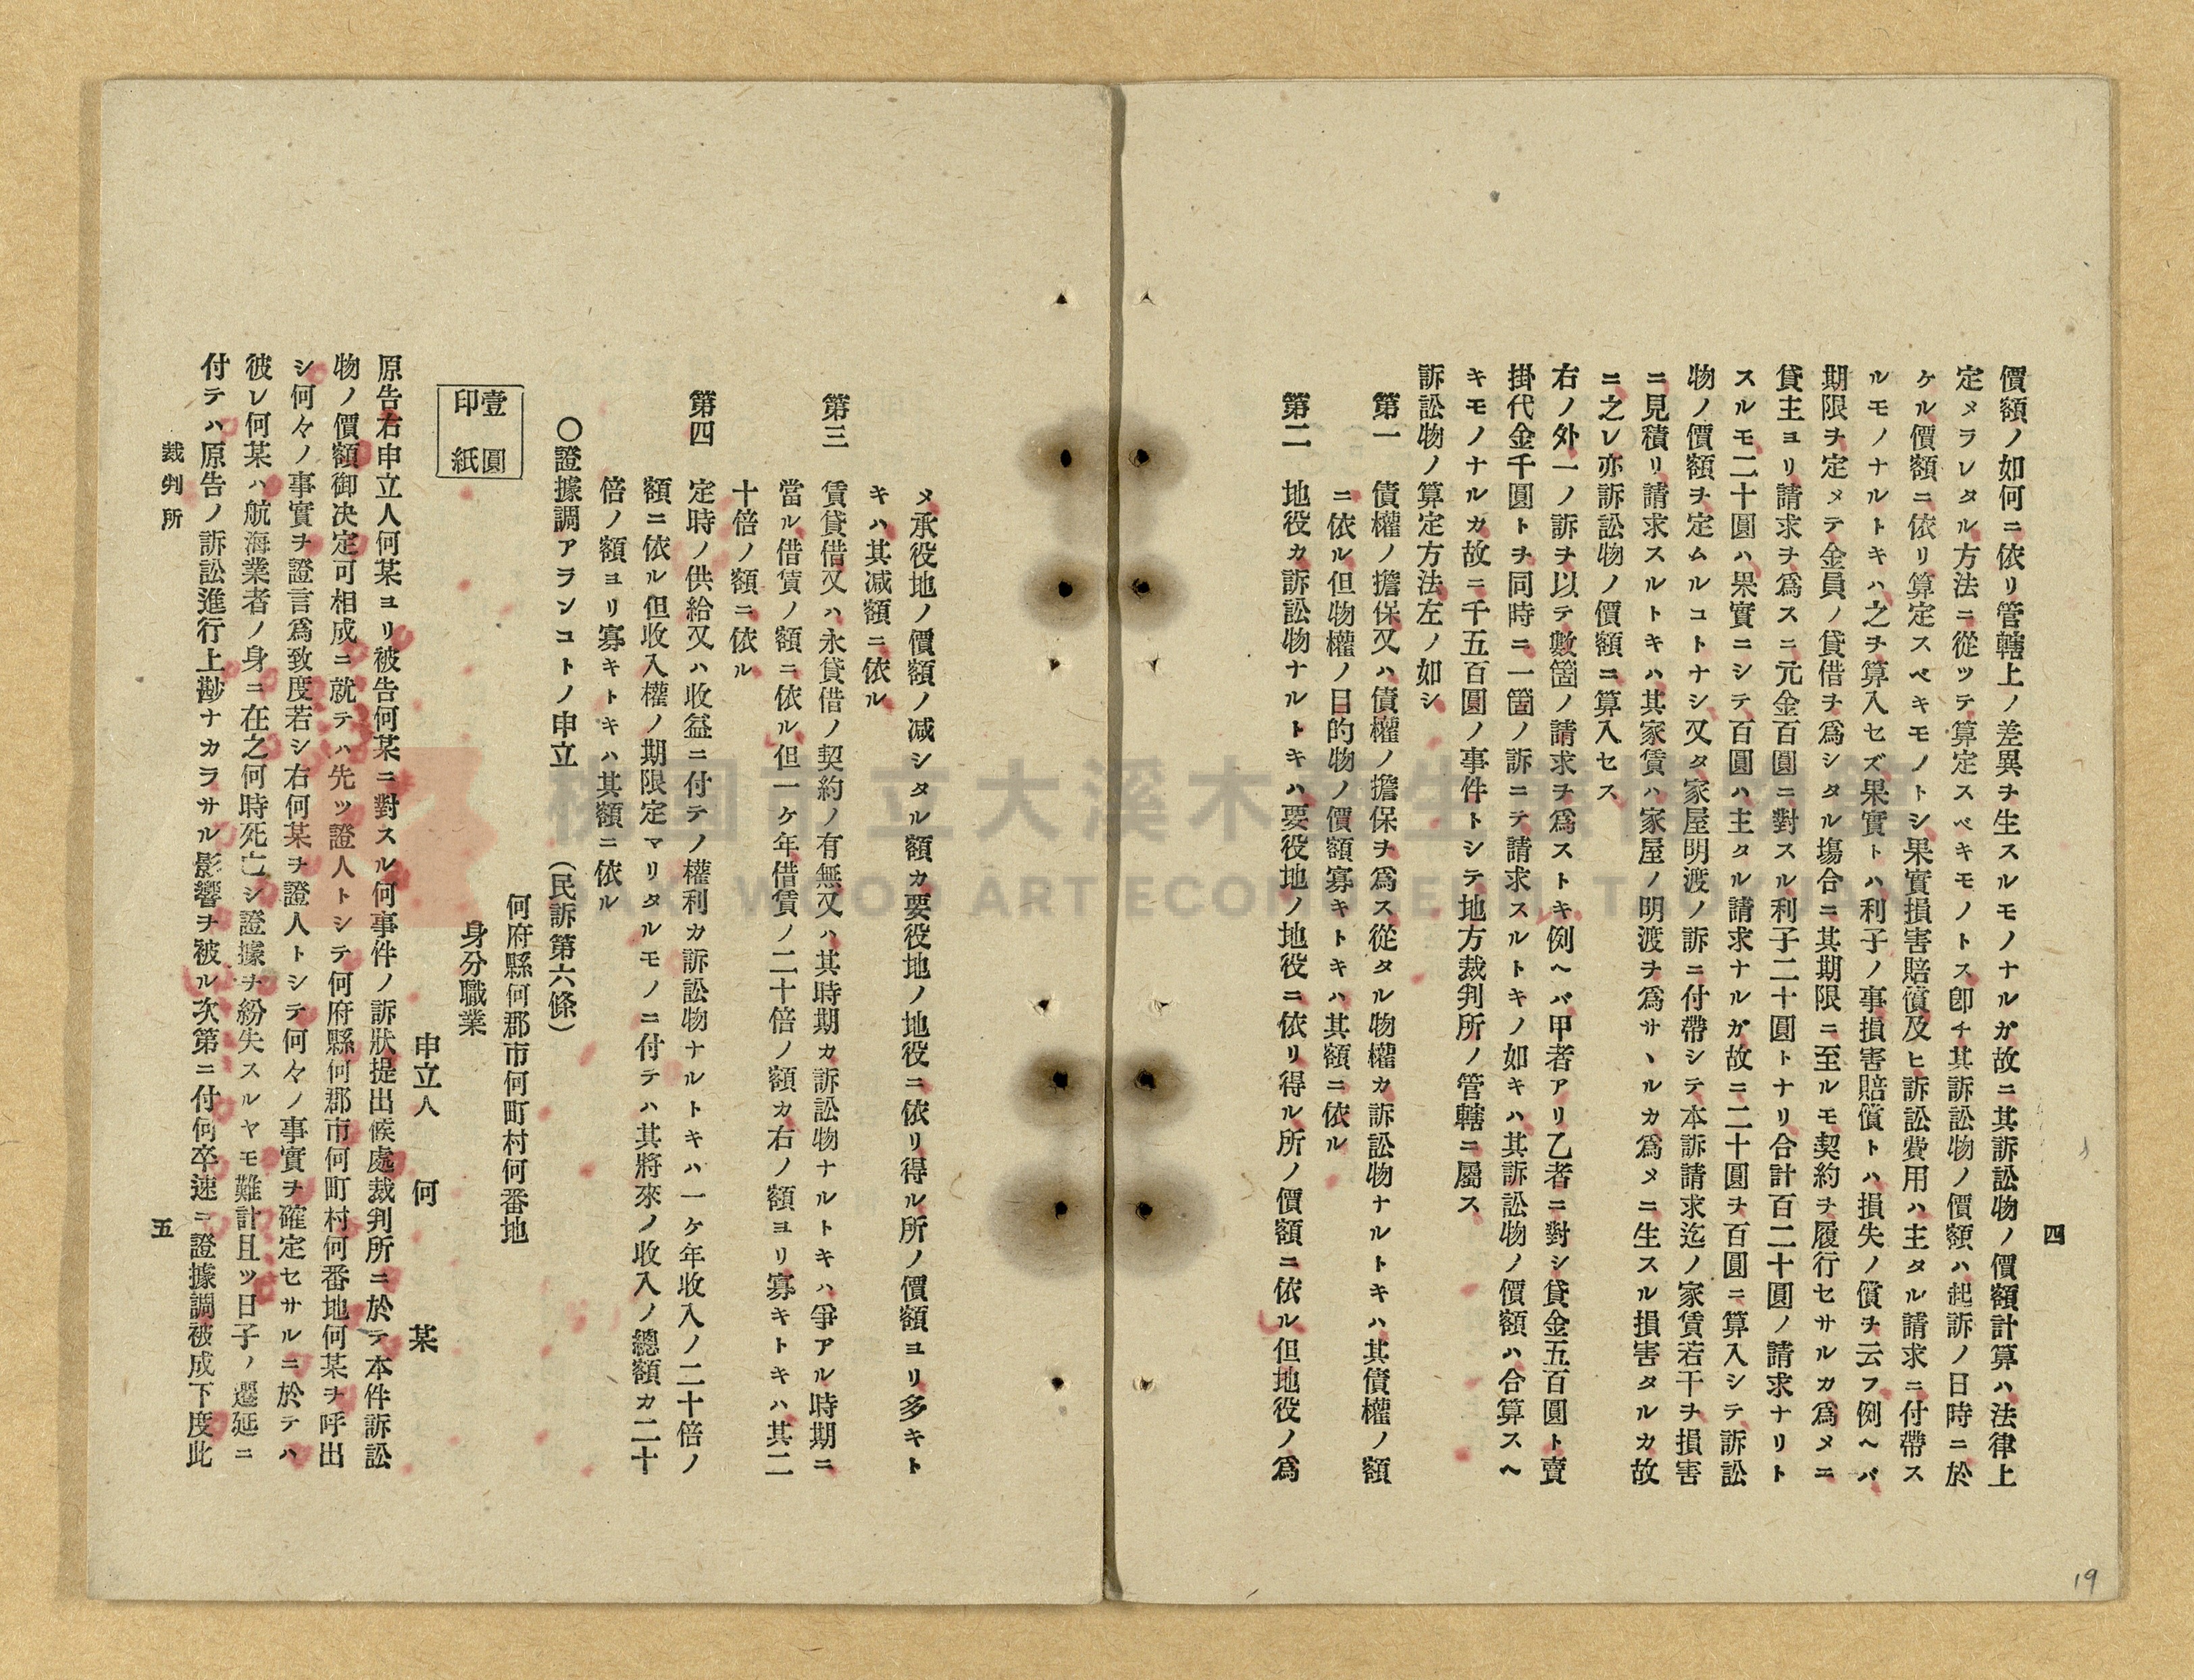 四
價額ノ如何ニ依リ管轄上ノ差異ヲ生スルモノナルガ故ニ其訴訟物ノ價額計算ハ法律上
定メラレタル方法ニ從ツテ算定スベキモノトス卽チ其訴訟物ノ價額ハ起訴ノ日時ニ於
ケル價額ニ依リ算定スベキモノトシ果實損害賠償及ヒ訴訟費用ハ主タル請求ニ付帶ス
ルモノナルトキハ之ヲ算入セズ果實トハ利子ノ事損害賠償トハ損失ノ償ヲ云フ例ヘバ
期限ヲ定メテ金員ノ貸借ヲ爲シタル塲合ニ其期限ニ至ルモ契約ヲ履行セサルガ爲メニ
貸主ヨリ請求ヲ爲スニ元金百圓ニ對スル利子二十圓トナリ合計百二十圓ノ請求ナリト
スルモ二十圓ハ果實ニシテ百圓ハ主タル請求ナルガ故ニ二十圓ヲ百圓ニ算入シテ訴訟
物ノ價額ヲ定ムルコトナシ又タ家屋明渡ノ訴ニ付帶シテ本訴請求迄ノ家賃若干ヲ損害
ニ見積リ請求スルトキハ其家賃ハ家屋ノ明渡ヲ爲サヽルカ爲メニ生スル損害タルカ故
ニ之レ亦訴訟物ノ價額ニ算入セス
右ノ外一ノ訴ヲ以テ數箇ノ請求ヲ爲ストキ例ヘバ甲者アリ乙者ニ對シ貸金五百圓ト賣
掛代金千圓トヲ同時ニ一箇ノ訴ニテ請求スルトキノ如キハ其訴訟物ノ價額ハ合算スヘ
キモノナルカ故ニ千五百圓ノ事件トシテ地方裁判所ノ管轄ニ屬ス
訴訟物ノ算定方法左ノ如シ
第一　債權ノ擔保又ハ債權ノ擔保ヲ爲ス從タル物權カ訴訟物ナルトキハ其債權ノ額
ニ依ル但物權ノ目的物ノ價額寡キトキハ其額ニ依ル
第二　地役カ訴訟物ナルトキハ要役地ノ地役ニ依リ得ル所ノ價額ニ依ル但地役ノ爲
メ承役地ノ價額ノ减シタル額カ要役地ノ地役ニ依リ得ル所ノ價額ヨリ多キト
キハ其减額ニ依ル
第三　賃貸借又ハ永貸借ノ契約ノ有無又ハ其時期カ訴訟物ナルトキハ爭アル時期ニ
當ル借賃ノ額ニ依ル但一ケ年借賃ノ二十倍ノ額カ右ノ額ヨリ寡キトキハ其二
十倍ノ額ニ依ル
第四　定時ノ供給又ハ收益ニ付テノ權利カ訴訟物ナルトキハ一ケ年收入ノ二十倍ノ
額ニ依ル但收入權ノ期限定マリタルモノニ付テハ其將來ノ收入ノ總額カ二十
倍ノ額ヨリ寡キトキハ其額ニ依ル
〇證據調アランコトノ申立　（民訴第六條）
何府縣何郡市何町村何番地
身分職業
申立人　何　某
壹圓
印紙
原告右申立人何某ヨリ被告何某ニ對スル何事件ノ訴狀提出候處裁判所ニ於テ本件訴訟
物ノ價額御决定可相成ニ就テハ先ツ證人トシテ何府縣何郡市何町村何番地何某ヲ呼出
シ何々ノ事實ヲ證言爲致度若シ右何某ヲ證人トシテ何々ノ事實ヲ確定セサルニ於テハ
彼レ何某ハ航海業者ノ身ニ在之何時死亡シ證據ヲ紛失スルヤモ難計且ツ日子ノ遷延ニ
付テハ原告ノ訴訟進行上尠ナカラサル影響ヲ被ル次第ニ付何卒速ニ證據調被成下度此
裁判所
五
19
桃園市立大溪木藝生態博物館
DAXI WOOD ART ECOMUSEUM, TAOYUAN